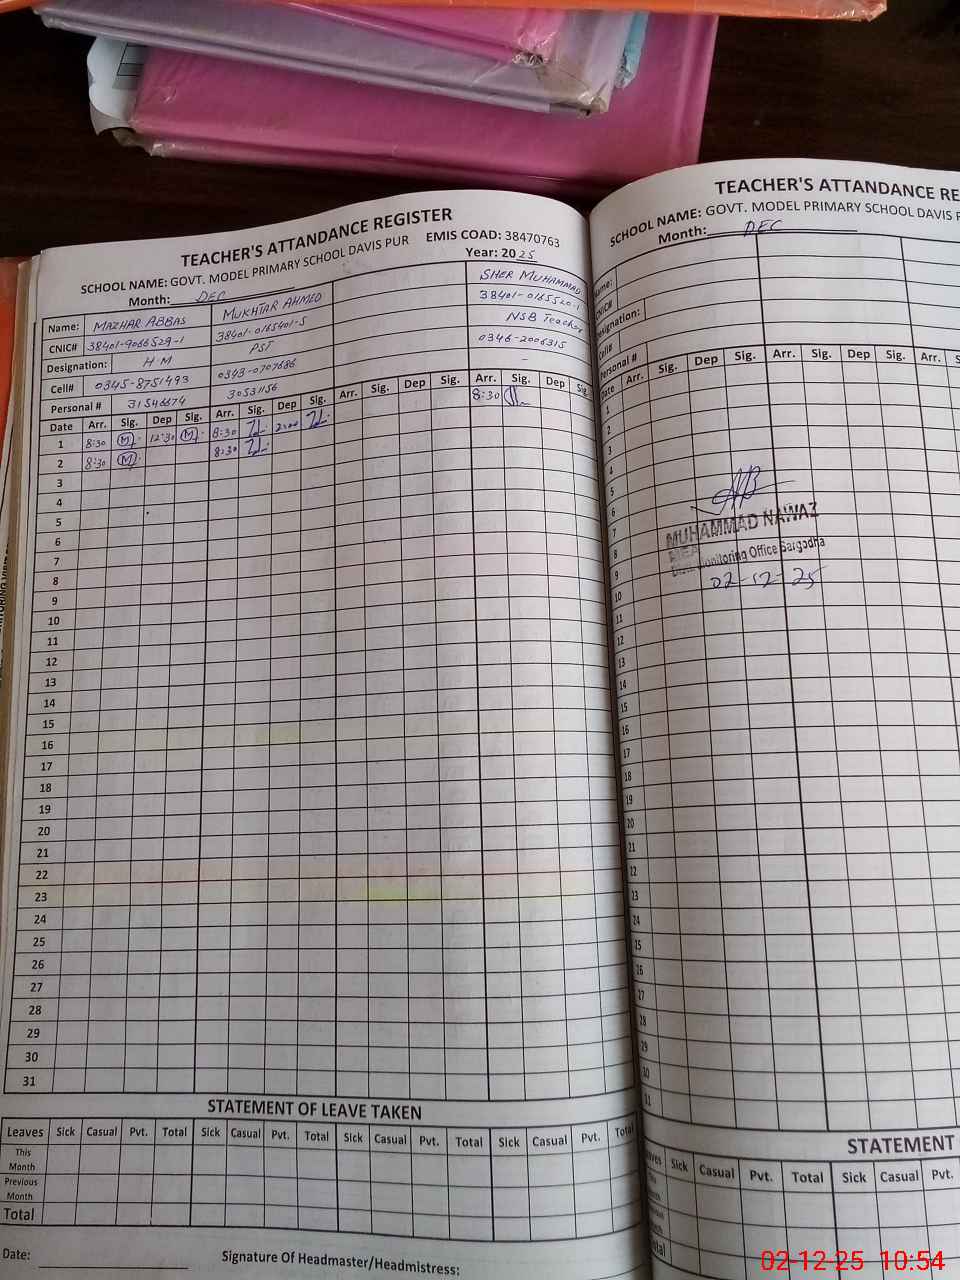 TEACHER'S ATTANDANCE REGISTER
SCHOOL NAME: GOVT. MODEL PRIMARY SCHOOL DAVIS PUR EMIS COAD: 38470763
Month: DEC Year: 2025
Name: MAZHAR ABBAS MUKHTAR AHMED SHER MUHAMMAD
CNIC# 38401-9066529-1 38401-0165401-5 38401-0165520-1
Designation: H M PST NSB Teacher
Cell# 0345-8751493 0343-0707686 0346-2006315
Personal # 31546674 30531156 -
Date Arr. Sig. Dep Sig. Arr. Sig. Dep Sig. Arr. Sig. Dep Sig. Arr. Sig. Dep Sig.
1 8:30 M 12:30 M 8:30 2:00 8:30
2 8:30 M 8:30
3
4
5
6
7
8
9
10
11
12
13
14
15
16
17
18
19
20
21
22
23
24
25
26
27
28
29
30
31
STATEMENT OF LEAVE TAKEN
Leaves Sick Casual Pvt. Total Sick Casual Pvt. Total Sick Casual Pvt. Total Sick Casual Pvt. Total
This Month
Previous Month
Total
Date:
Signature Of Headmaster/Headmistress:
TEACHER'S ATTANDANCE RE
SCHOOL NAME: GOVT. MODEL PRIMARY SCHOOL DAVIS P
Month: DEC
Name:
CNIC#
Designation:
Cell#
Personal #
Date Arr. Sig. Dep Sig. Arr. Sig. Dep Sig. Arr. S
1
2
3
4
5
6
7
8
9
10
11
12
13
14
15
16
17
18
19
20
21
22
23
24
25
26
27
28
29
30
31
MUHAMMAD NAWAZ
MEA
Monitoring Office Sargodha
02-12-25
STATEMENT
Sick Casual Pvt. Total Sick Casual Pvt.
02-12-25 10:54